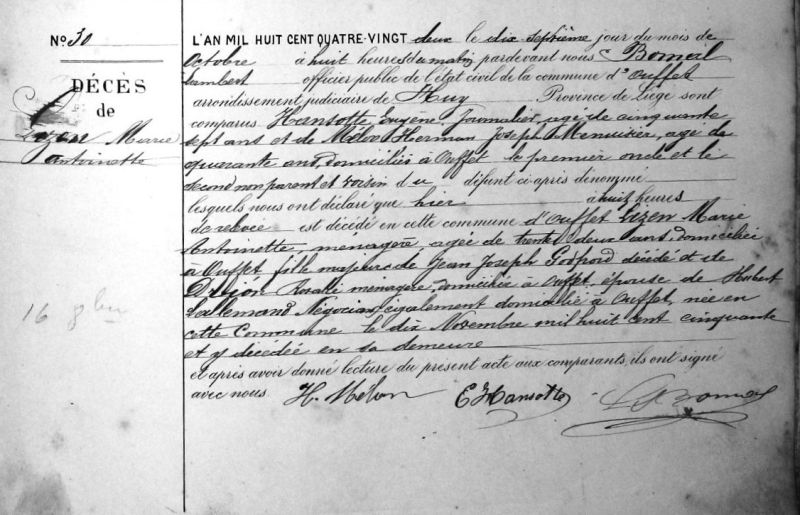 No 30
DÉCÈS
de
Lizen Marie
Antoinette
16 8bre
L'AN MIL HUIT CENT QUATRE-VINGT deux le dix septième jour du mois de
Octobre à huit heures du matin pardevant nous Bonmal
Lambert officier public de l'état civil de la commune d'Ouffet
arrondissement judiciaire de Huy Province de Liége sont
comparus Hansotte Eugène journalier, age de cinquante
sept ans et de Mélon Herman Joseph Menuisier, age de
quarante ans, domiciliés à Ouffet le premier oncle et le
second non parent et voisin du défunt ci-après dénommé
lesquels nous ont déclaré que hier à huit heures
de relevée est décédé en cette commune d'Ouffet Lizen Marie
Antoinette, ménagère, agée de trente deux ans, domiciliée
à Ouffet fille majeure de Jean Joseph Godfroid décédé et de
Rosalie ménagère, domiciliée à Ouffet, épouse de Hubert
Lallemand Négociant, également domicilié à Ouffet, née en
cette Commune le dix Novembre mil huit cent cinquante
et y décédée en sa demeure
et après avoir donné lecture du présent acte aux comparants, ils ont signé
avec nous. H. Mélon E Hansotte L Bonmal